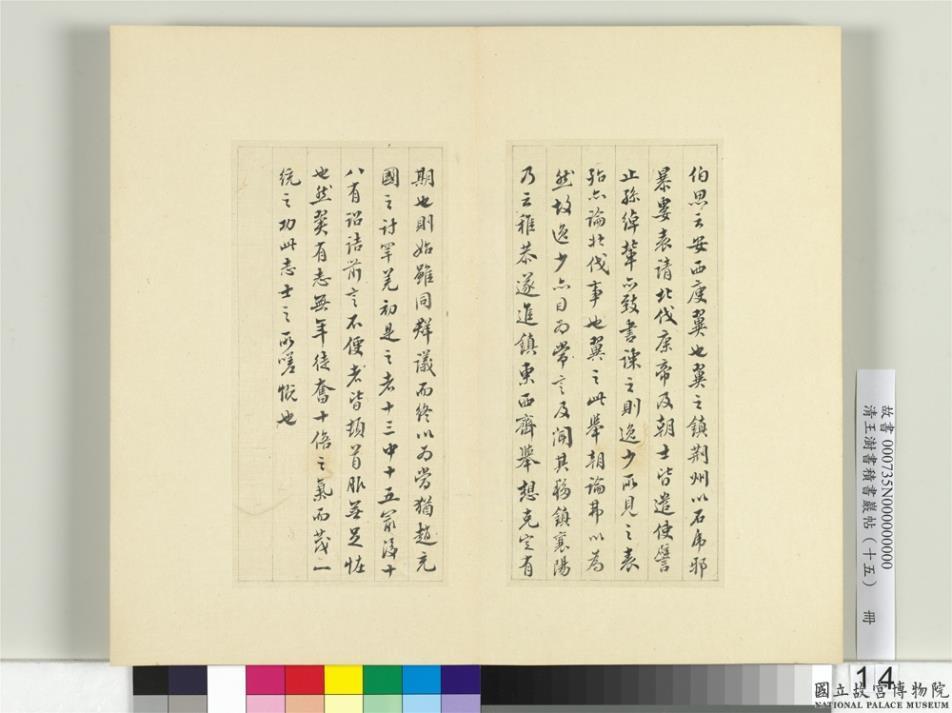 伯思云安西庾翼也翼之鎮荆州以石虎邪
暴婁表請北伐康帝及朝士皆遣使譬
止孫綽輩亦致書諫之則逸少所見之表
殆亦論北伐事也翼之此舉朝論弗以為
然故逸少亦目為常言及聞其移鎮襄陽
乃云稚恭遂進鎮東西齊舉想克定有
期也則始雖同群議而終以為當猶趙充
國之討罕羌初是之者十三中十五最後十
八有詔詰前言不便者皆頓首服無足怪
也然翼有志無年徒奮十倍之氣而蔑一
統之功此志士之所嗟慨也
故書 000735N000000000
清王澍書積書巖帖(十五) 冊
14
國立故宮博物院
NATIONAL PALACE MUSEUM